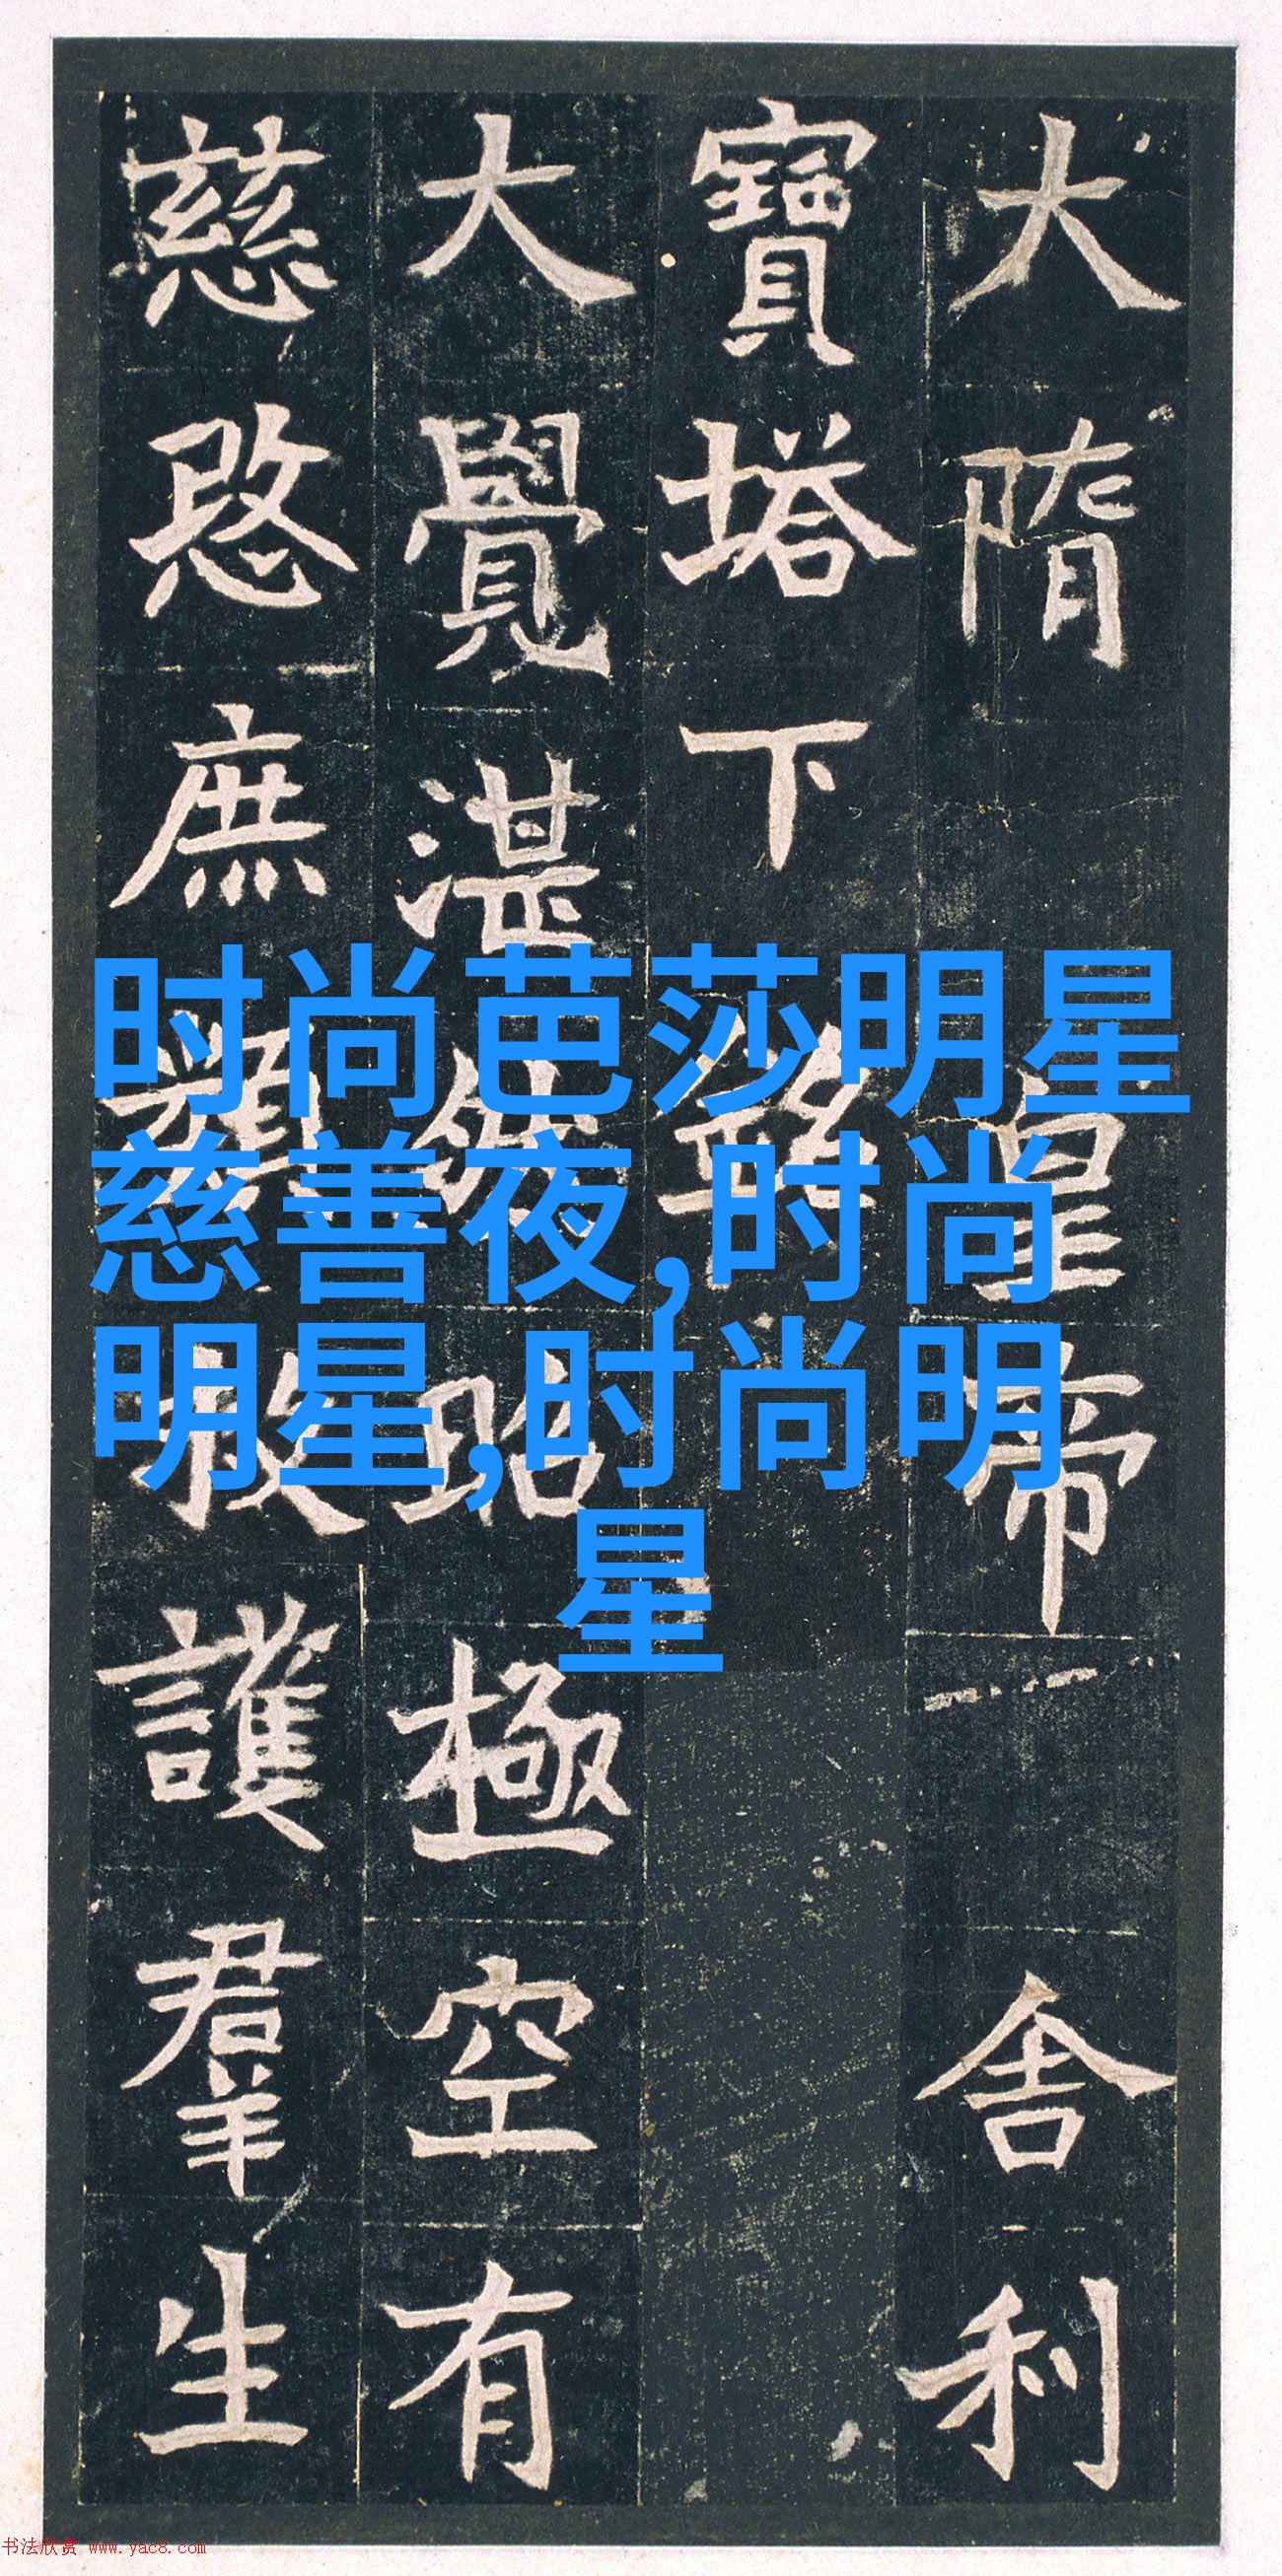 大隋皇帝舍利
寶塔下銘
大覺湛然昭極空有
慈愍庶類救護羣生
时尚芭莎明星
慈善夜,时尚
明星,时尚明
星
书法欣赏 www.yac8.com